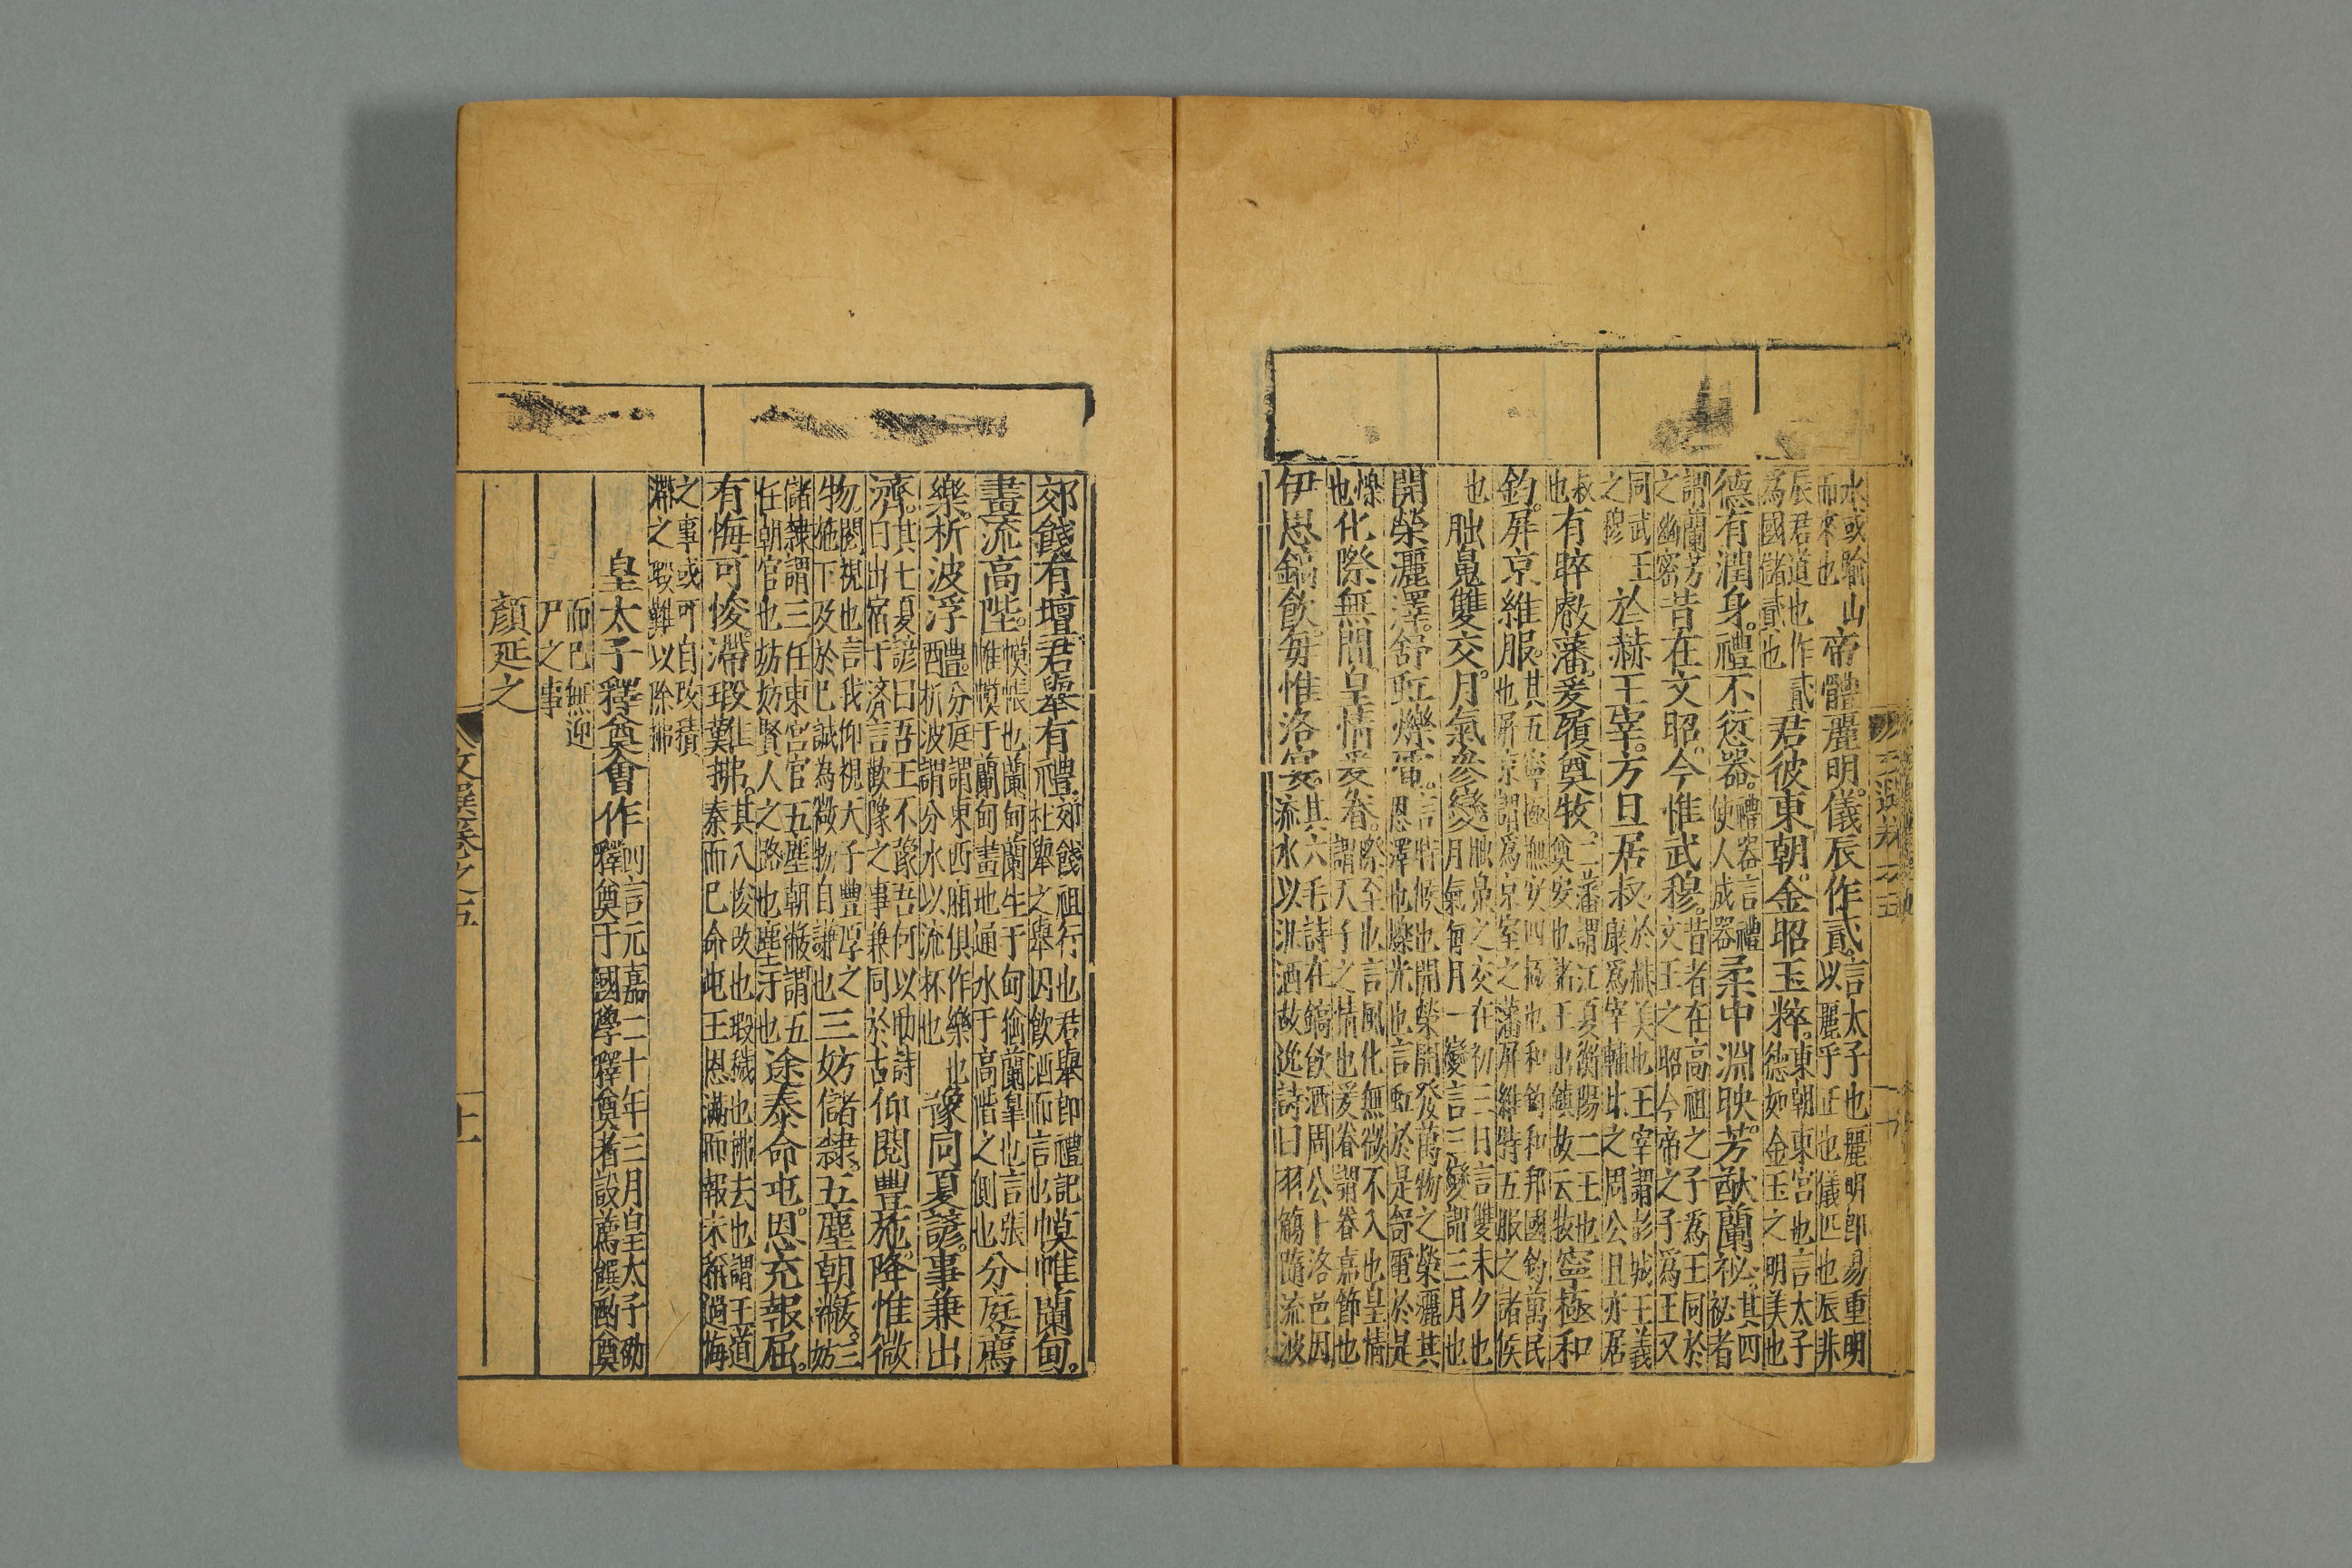 水或踰山
而來也
帝體麗明儀辰作貳
言太子也麗明即易重明
以麗乎正也儀匹也辰非
辰君道也作貳
為國儲貳也
君彼東朝金昭玉粹
東朝東宮也言太子
德如金玉之明美也
德有潤身禮不愆器
禮容言禮
使人成器
柔中淵映芳猷蘭祕
其四
祕者
謂蘭芳
之幽密
昔在文昭今惟武穆
昔者在高祖之子為王同於
文王之昭今帝之子為王又
同武王
之穆
於赫王宰方旦居叔
於赫美也王宰謂彭城王義
康為宰輔此之周公旦亦居
叔
也
有睟叡藩爰履奠牧
二藩謂江夏衡陽二王也
奠安也諸王出鎮故云牧
寧極和
鈞屏京維服
其五寧極撫安四極也和鈞和邦國鈞萬民
也屏京謂為京室之藩屏維持五服之諸侯
也
朏魄雙交月氣參變
朏魄之交在初三日言雙未夕也
月氣每月一變言三變謂三月也
開榮灑澤舒虹爍電
言時候也開榮開發萬物之榮灑其
恩澤也爍光也言虹於是舒電於是
爍
也
化際無間皇情爰眷
際至也言風化無微不入也皇情
謂天子之情也爰眷謂眷嘉節也
伊思鎬飲每惟洛宴
其六毛詩在鎬飲酒周公卜洛邑因
流水以汎酒故逸詩曰羽觴隨流波
郊餞有壇君舉有禮
郊餞祖行也君舉即禮記
杜舉之舉因飲酒而言也
幙帷蘭甸
畫流高陛
幙帳也蘭甸蘭生于甸猶蘭臯也言張
帷幙于蘭甸畫地通水于高階之側也
分庭薦
樂析波浮醴
分庭謂東西廂俱作樂也
析波謂分水以流杯也
豫同夏諺事兼出
濟
其七夏諺曰吾王不豫吾何以助詩
曰出宿于濟言歡豫之事兼同於古
仰閱豐施降惟微
物
閱視也言我仰視天子豐厚之
施下及於已誠為微物自謙也
三妨儲隸五塵朝黻
三
妨
儲隸謂三任東宮官五塵朝黻謂五
任朝官也妨妨賢人之路也塵汙也
途泰命屯恩充報屈
有悔可悛滯瑕難拂
其八悛改也瑕穢也拂去也謂王道
泰而已命屯王恩滿而報未稱過悔
之事或可自改積
滯之瑕難以除拂
皇太子釋奠會作
釗言元嘉二十年三月皇太子劭
釋奠于國學釋奠者設薦饌酌奠
而已無迎
尸之事
顏延之
文選卷之五
十一